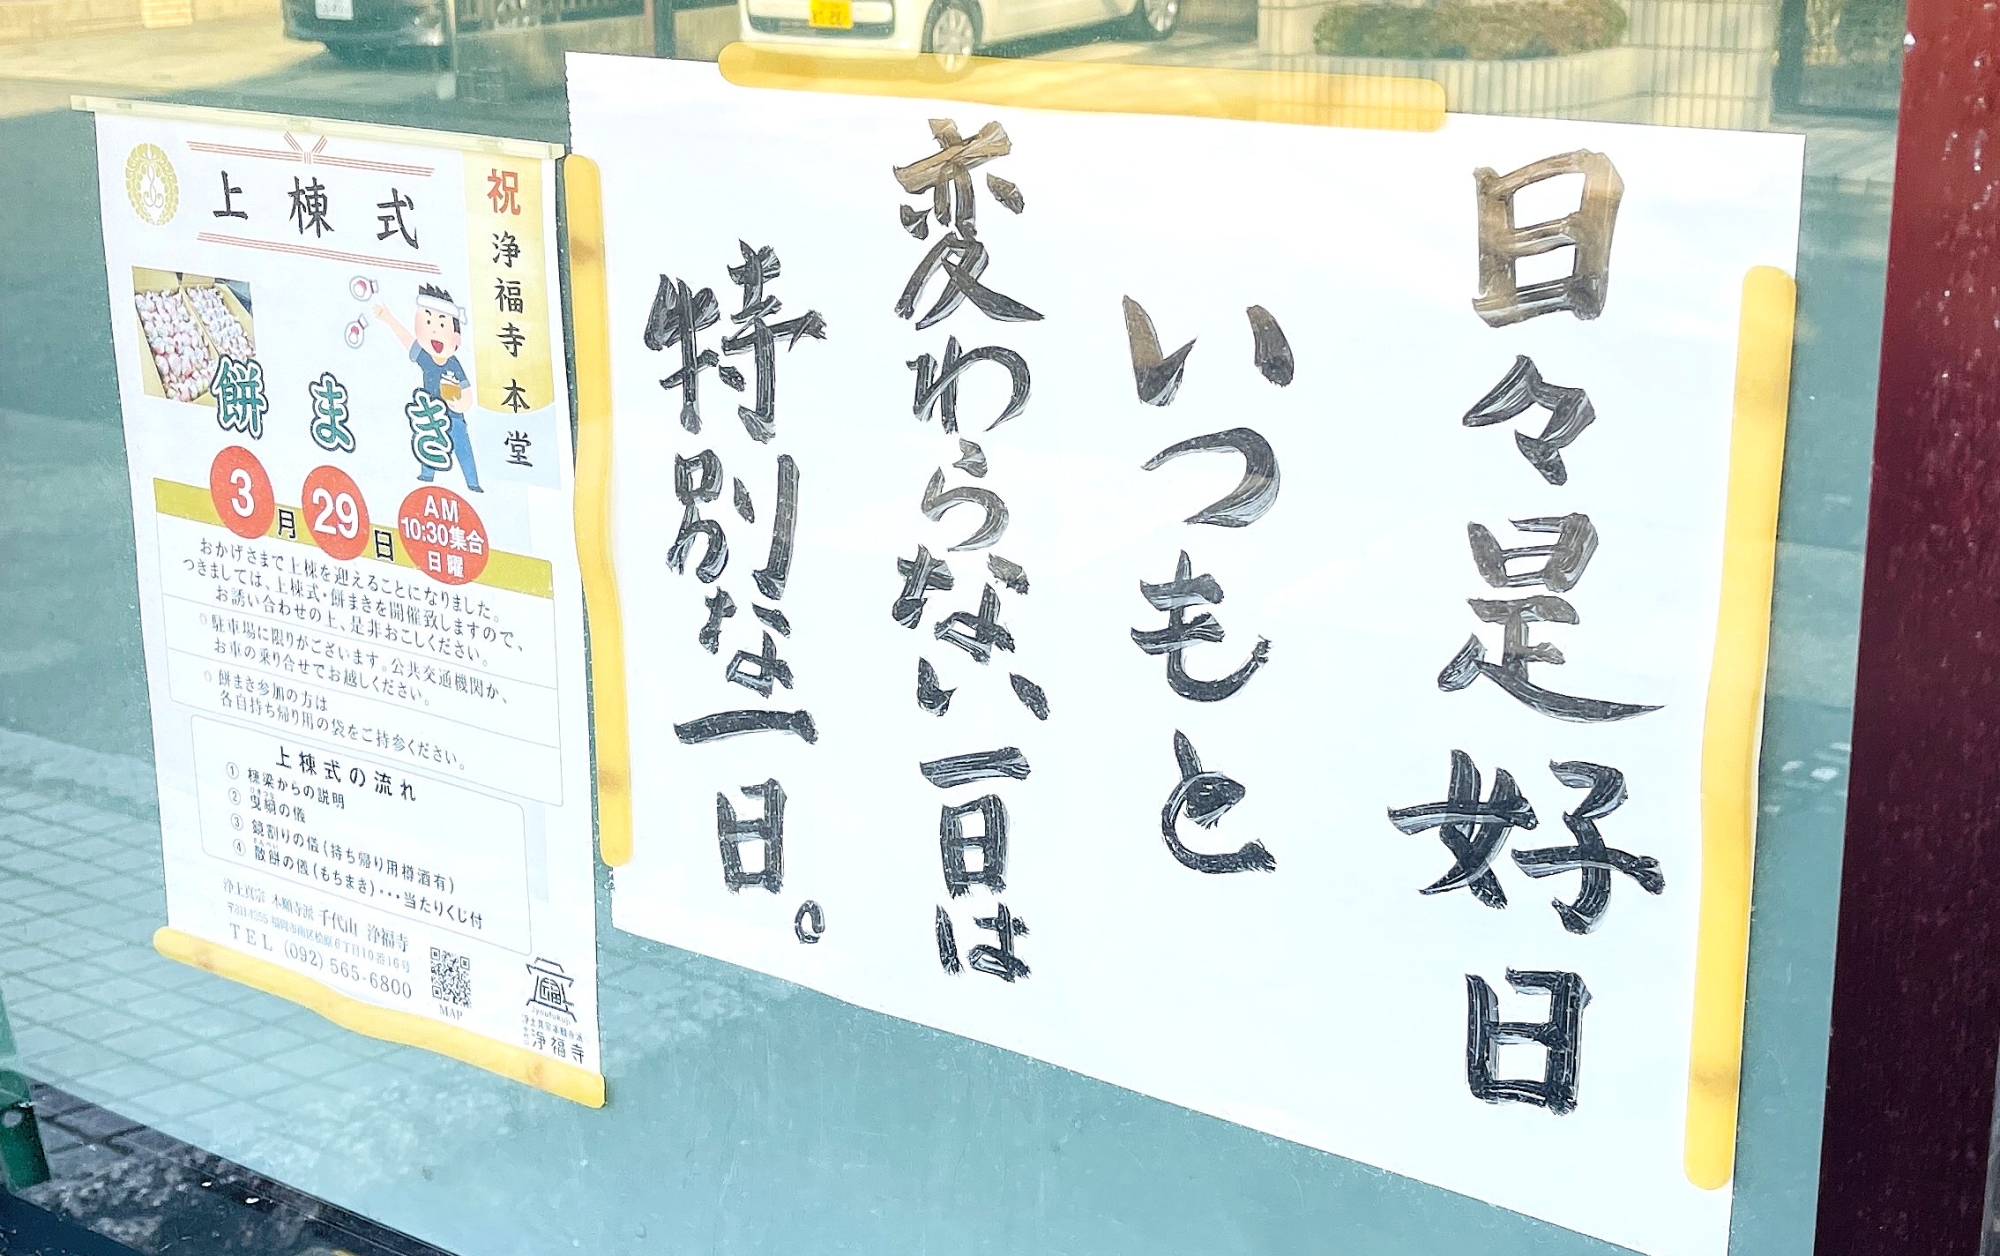 日々是好日
いつもと
変わらない一日は
特別な一日。
祝 浄福寺 本堂
上棟式
餅まき
3月29日
AM
10:30集合
日曜
おかげさまで上棟を迎えることになりました。
つきましては、上棟式・餅まきを開催致しますので、
お誘い合わせの上、是非おこしください。
◎駐車場に限りがございます。公共交通機関か、
お車の乗り合せでお越しください。
◎餅まき参加の方は
各自持ち帰り用の袋をご持参ください。
上棟式の流れ
① 棟梁からの説明
② 曳綱の儀
③ 鏡割りの儀(持ち帰り用樽酒有)
④ 散餅の儀(もちまき)・・・当たりくじ付
浄土真宗 本願寺派 千代山 浄福寺
〒811-1355 福岡市南区桧原6丁目10番16号
TEL (092) 565-6800
MAP
Jyoufukuji
浄土真宗本願寺派
浄福寺